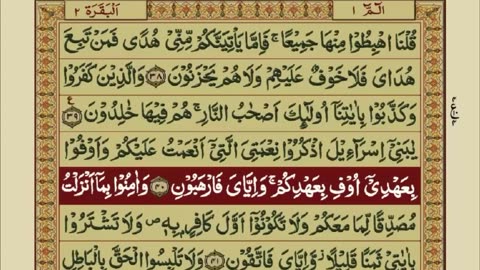 الٓمّٓ ۱ اَلْبَقَرَة ۲
قُلْنَا اهْبِطُوْا مِنْهَا جَمِيْعًا ۚ فَاِمَّا يَاْتِيَنَّكُمْ مِّنِّيْ هُدًى فَمَنْ تَبِعَ
هُدَايَ فَلَا خَوْفٌ عَلَيْهِمْ وَلَا هُمْ يَحْزَنُوْنَ ﴿۳۸﴾ وَالَّذِيْنَ كَفَرُوْا
وَكَذَّبُوْا بِاٰيٰتِنَآ اُولٰٓئِكَ اَصْحٰبُ النَّارِ ۚ هُمْ فِيْهَا خٰلِدُوْنَ ﴿۳۹﴾ ع
يٰبَنِيْٓ اِسْرَآءِيْلَ اذْكُرُوْا نِعْمَتِيَ الَّتِيْٓ اَنْعَمْتُ عَلَيْكُمْ وَاَوْفُوْا
بِعَهْدِيْٓ اُوْفِ بِعَهْدِكُمْ ۚ وَاِيَّايَ فَارْهَبُوْنِ ﴿۴۰﴾ وَاٰمِنُوْا بِمَآ اَنْزَلْتُ
مُصَدِّقًا لِّمَا مَعَكُمْ وَلَا تَكُوْنُوْٓا اَوَّلَ كَافِرٍۭ بِهٖ ۪ وَلَا تَشْتَرُوْا
بِاٰيٰتِيْ ثَمَنًا قَلِيْلًا ۡ وَّاِيَّايَ فَاتَّقُوْنِ ﴿۴۱﴾ وَلَا تَلْبِسُوا الْحَقَّ بِالْبَاطِلِ